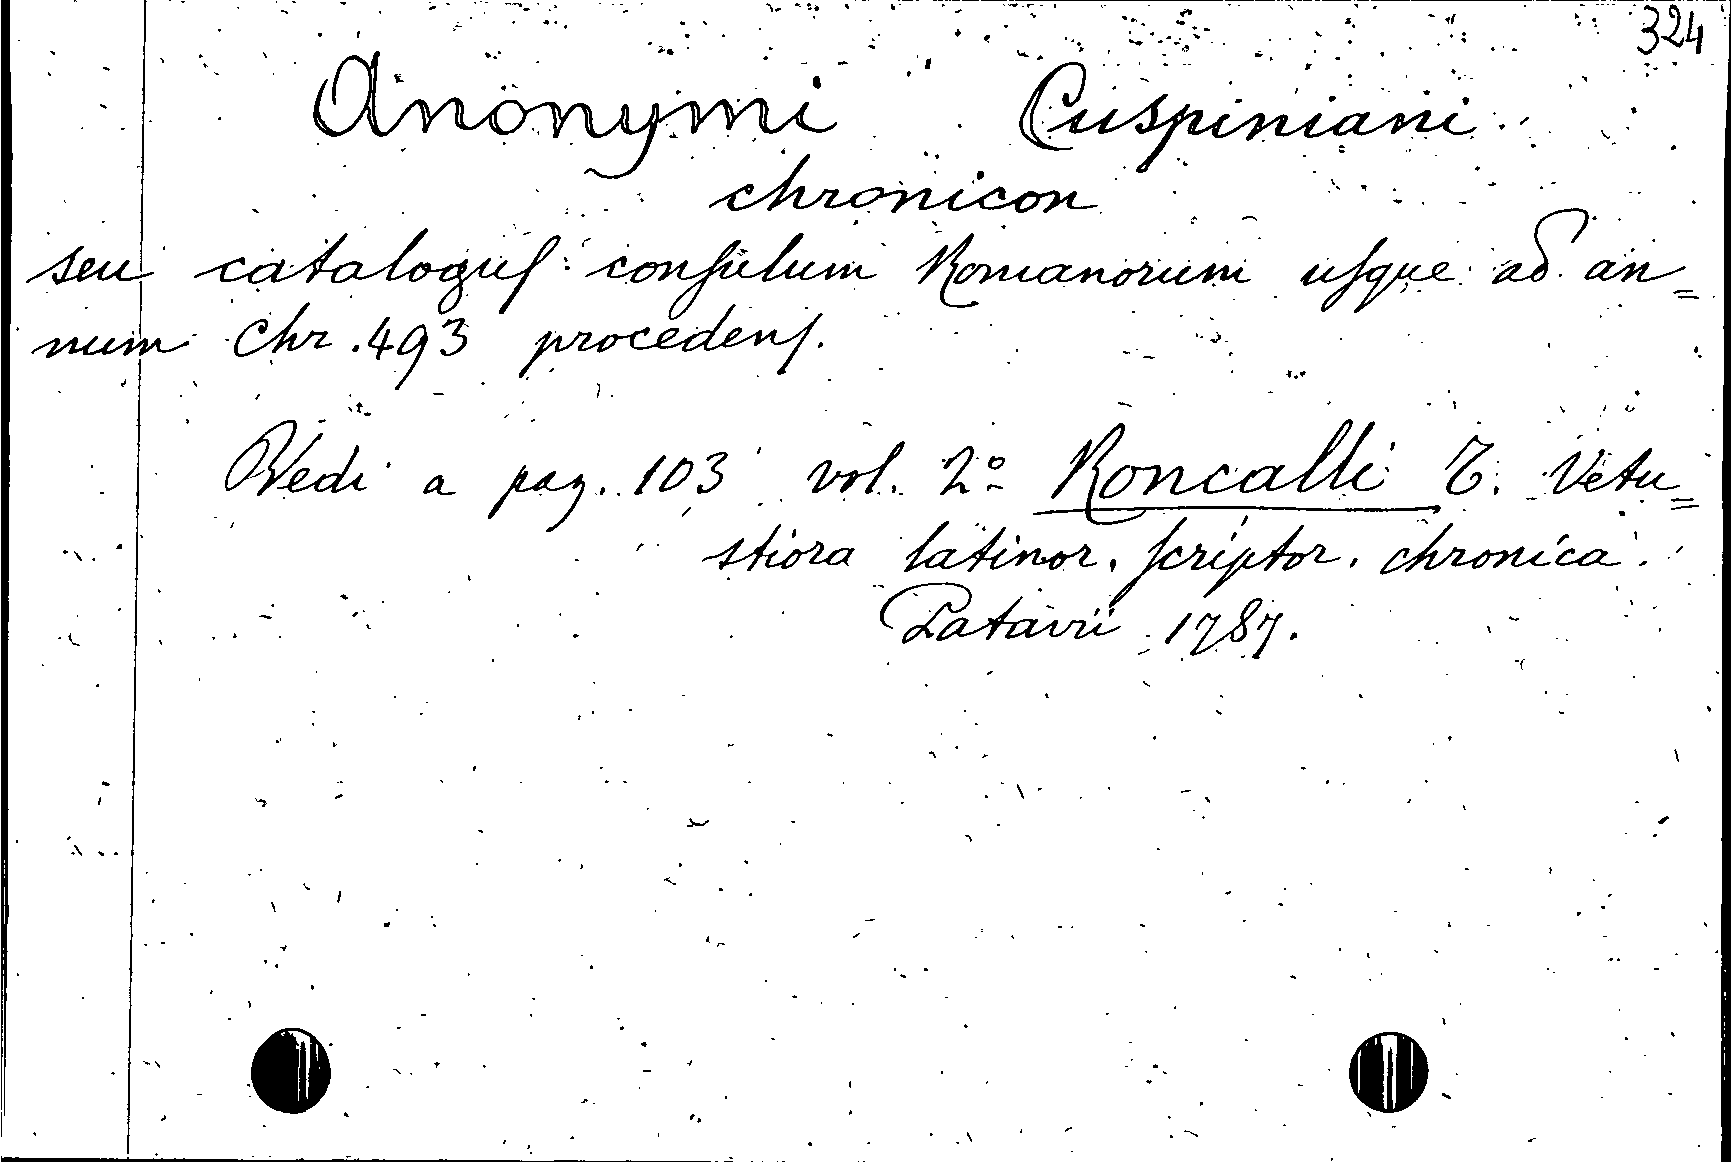 324
Anonymi Cuspiniani
chronicon
seu cataloguſ conſulum Romanorum uſque ad an=
num Chr. 493 procedenſ.
Vedi a pag. 103 vol. 2º Roncalli T. Vetu=
stiora latinor. ſcriptor. chronica.
Patavii 1787.